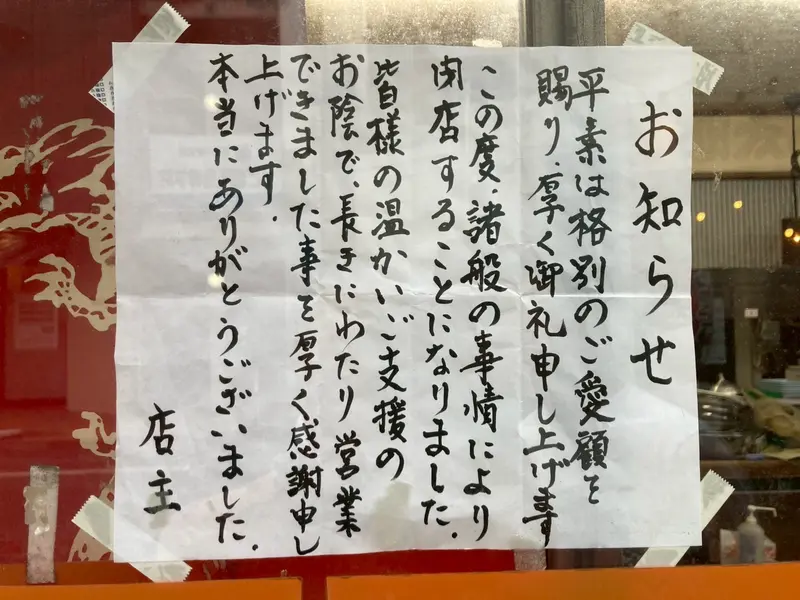 お知らせ
平素は格別のご愛顧を
賜り、厚く御礼申し上げます
この度、諸般の事情により
閉店することになりました。
皆様の温かいご支援の
お陰で、長きにわたり営業
できました事を厚く感謝申し
上げます。
本当にありがとうございました。
店主